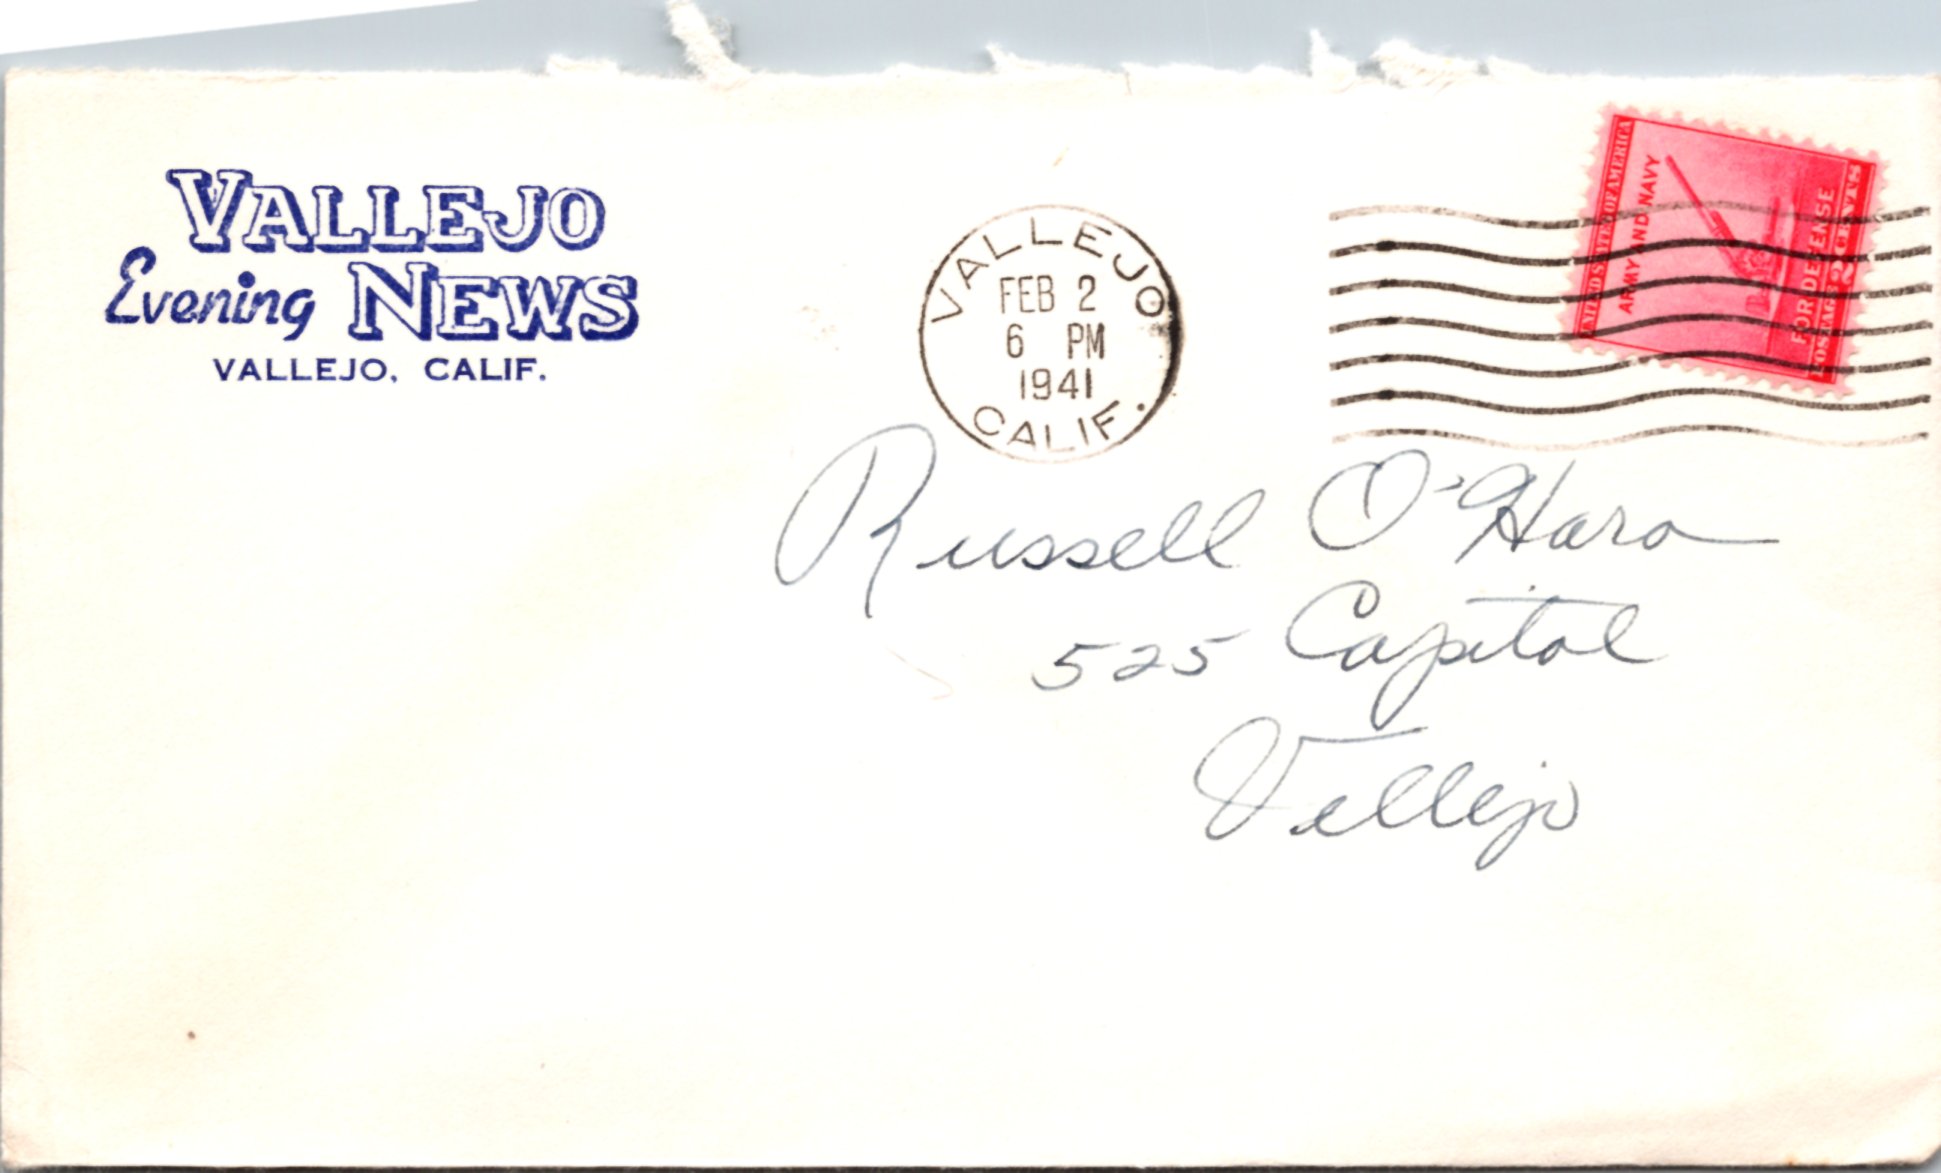 VALLEJO
Evening NEWS
VALLEJO, CALIF.
VALLEJO
FEB 2
6 PM
1941
CALIF.
UNITED STATES OF AMERICA
ARMY AND NAVY
FOR DEFENSE
POSTAGE 2 CENTS
Russell O'Hara
525 Capitol
Vallejo